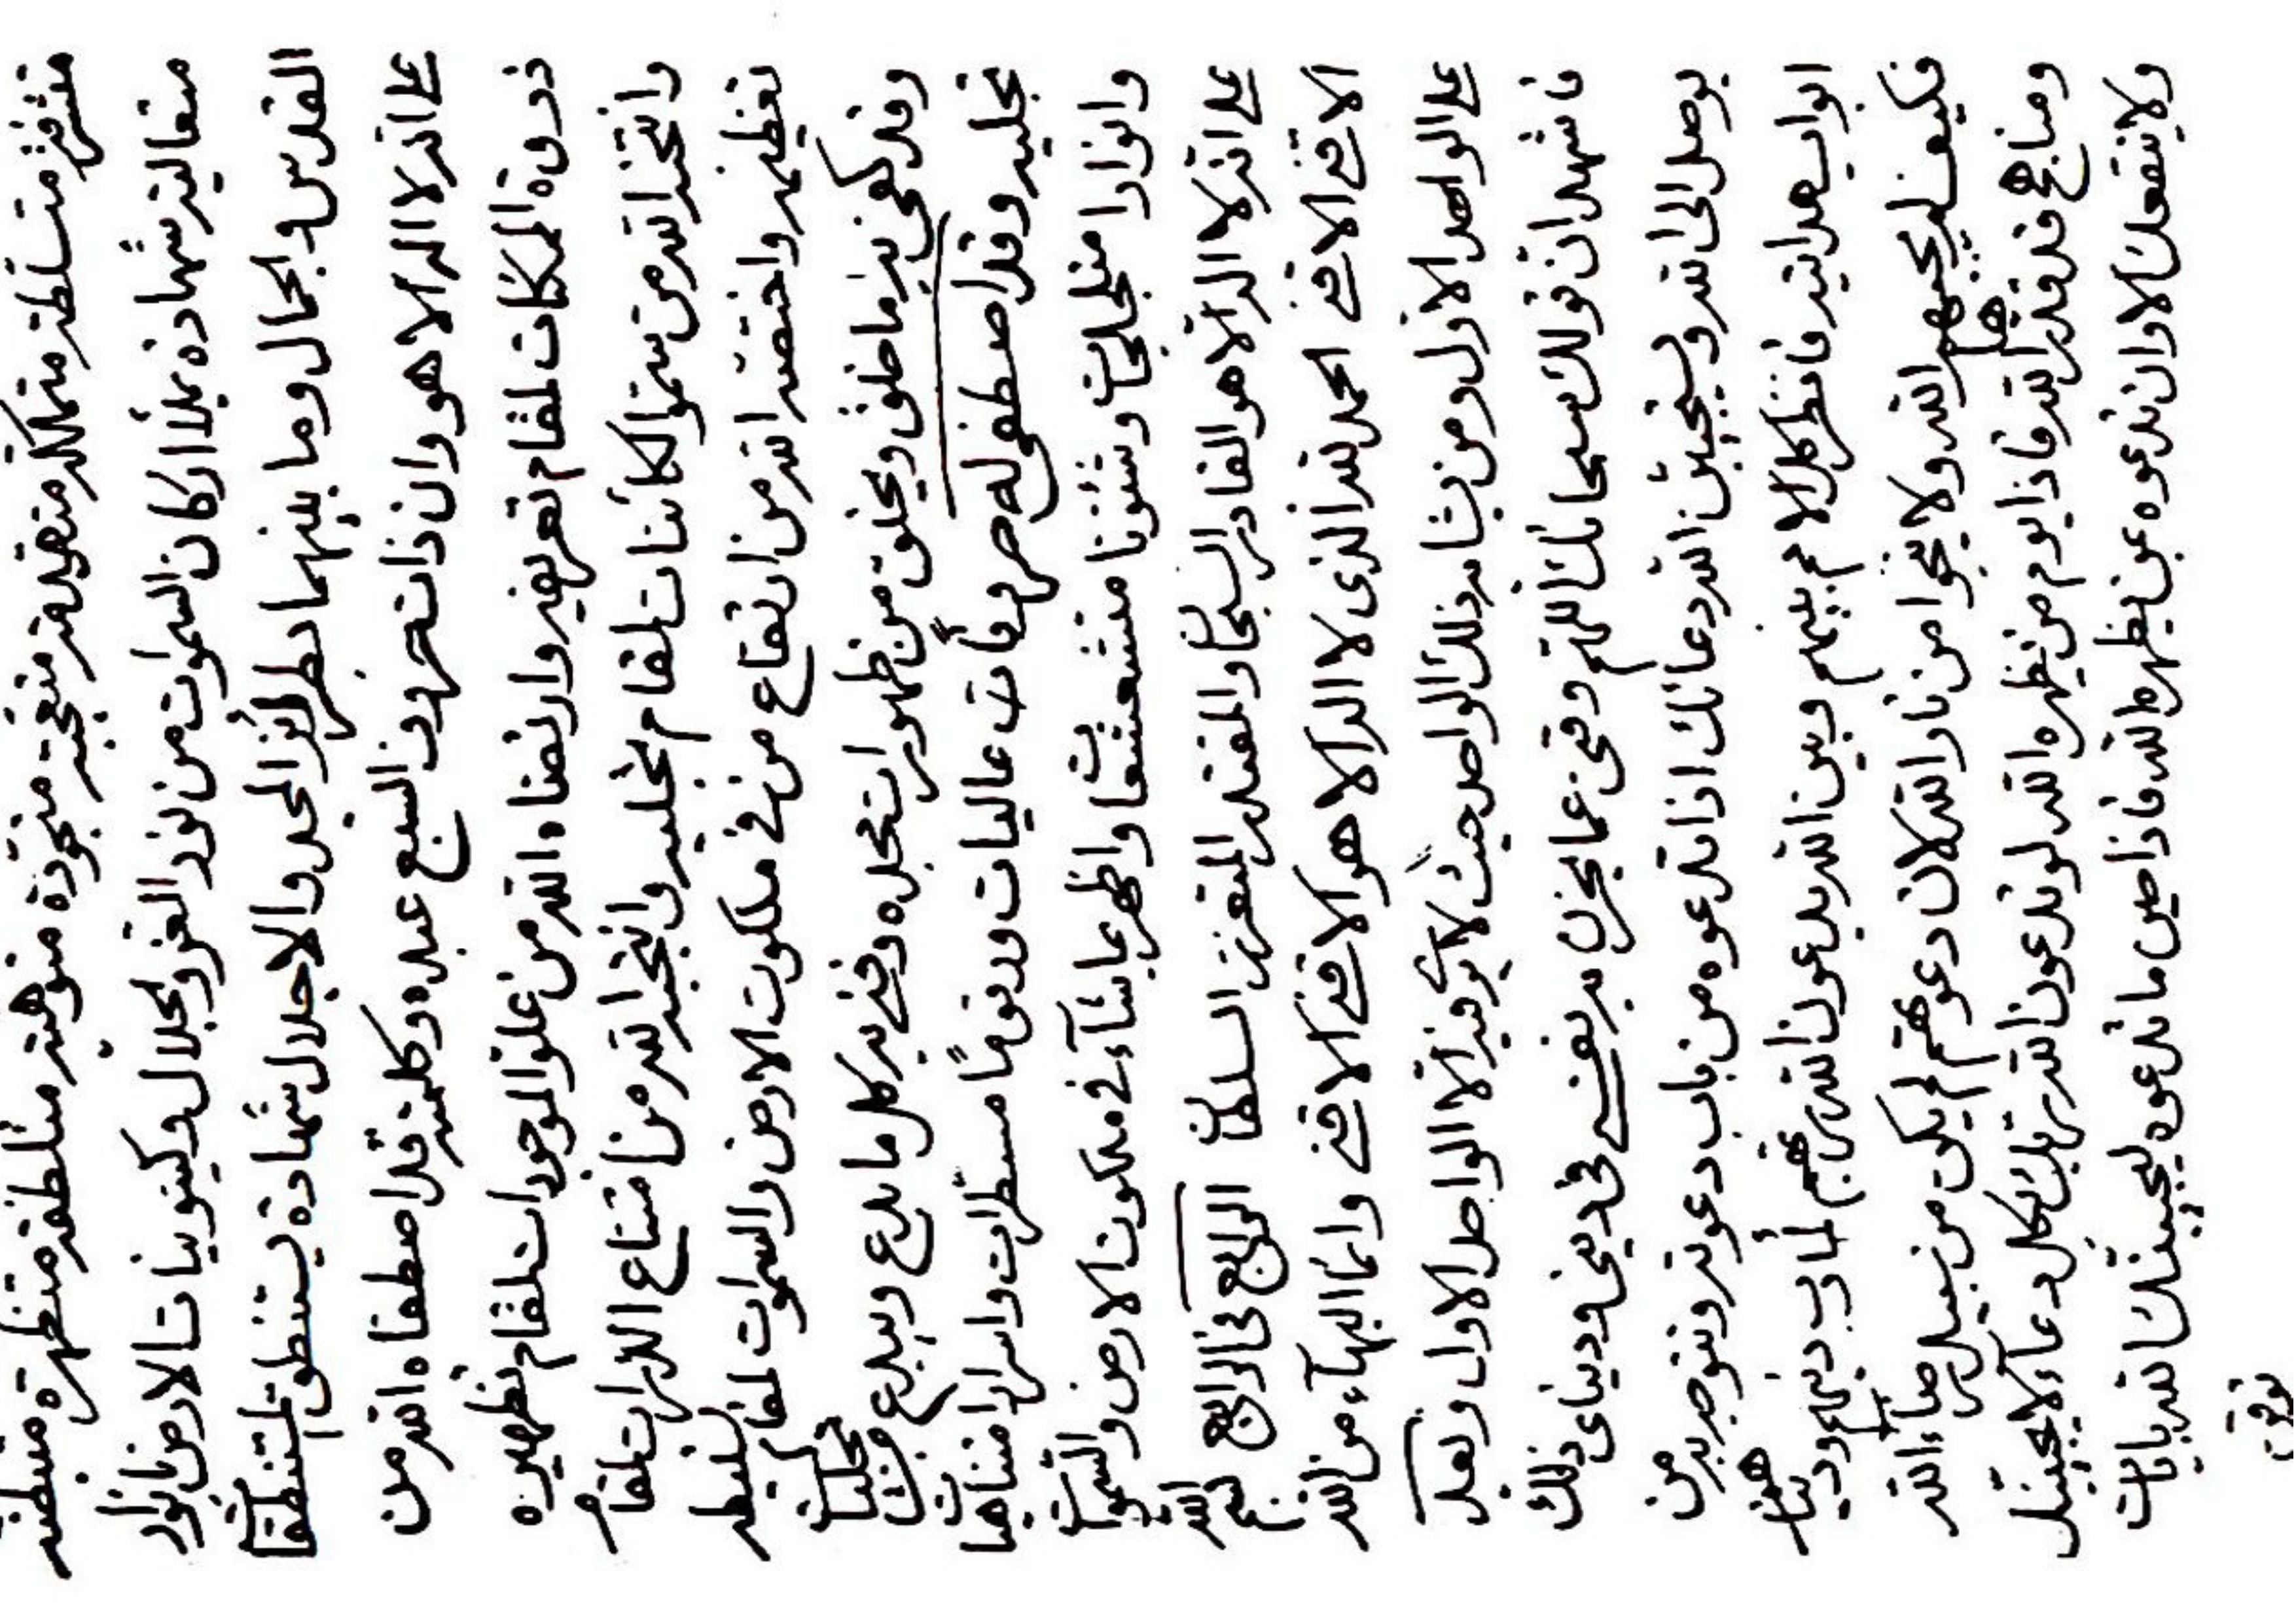 متشرفة متسلطة متملكة متعهدة متعجبة متجودة متوهبة متلطفة متظهرة متبطنة
متعالية شهادة يملأ اركان السموات من نور العز والجلال وكينونيات الارض بانوار
القدس والجمال وما بينهما بطرائز المجد والاجلال شهادة يستنطق المستنطقات
على انه لا اله الا هو وان ذات حروف السبع عبده وكلمته قد اصطفاه الله من
ذروة الممكنات لمقام تعريفه وارتضاه الله من علو الموجودات لمقام تظهيره
وانتخذ الله من سمو الكائنات لمقام تجليه وانتجبه الله من امتناع الذرات لمقام
تعظيمه واختصه الله من ارتفاع من في ملكوت الارض والسموات لمقام تسليطه
وقد كفى به ما خلق ويخلق من ظهورات مجده وفى به كل ما بدع ويبدع من تجليات
تجليه وقد اصطفى له حروفات عاليات ورقوما مسطرات واسرارا متناهيات
وانوارا متجليات وشئونا متشعشعات واظهر بما يشاء في ملكوت الارض والسموات
على انه لا اله الا هو القادر السبحان والمقتدر المتعزز السلطان الرابع في الرابع بسم الله
الاقدم الاقدم الحمد لله الذي لا اله الا هو الاقدم الاقدم وانما البهاء من الله
على الواحد الاول ومن يشابه ذلك الواحد حيث لا يرى فيه الا الواحد الاول وبعد
فاشهد ان قولك سبحانك اللهم وقني عما يحزن به نفسي في ديني ودنياي ذلك
يوصل الى الله وسيجيبن الله دعائك اذا تدعوه من باب دعوته وتتوجه به من
ابواب هدايته فانظر كل الامم بينهم وبين الله يدعون الله ربهم لمآرب دينهم ودنياهم
فكيف لم يجيبهم الله ولا ينجوا من نار الله لان دعوتهم لم يكن من سبيل رضاء الله
ومناهج قد قدرها الله فاذا يوم من يظهره الله لو تدعون الله ربك بكل دعاء لا يجيبنك
ولا ينفعك الا وان تدعوه عن يظهره الله فاذا حين ما تدعوه ليجيبنك الله بآيات
توقن